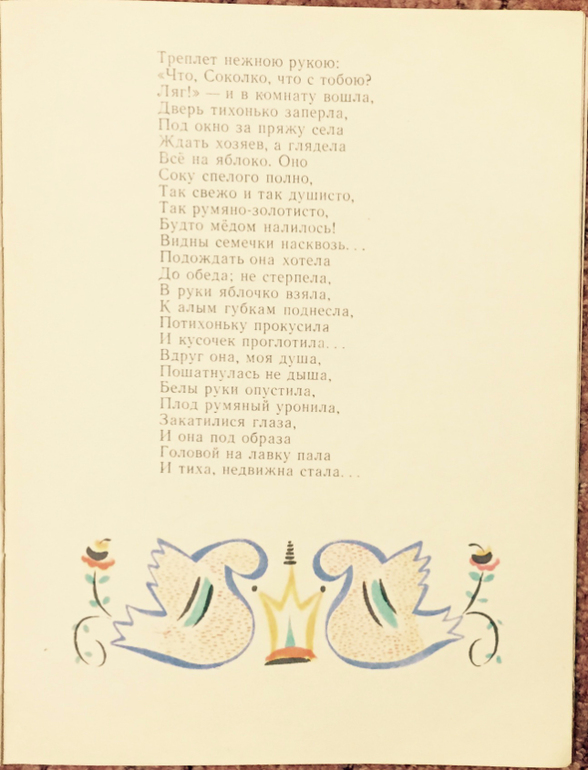 Треплет нежною рукою:
«Что, Соколко, что с тобою?
Ляг!» — и в комнату вошла,
Дверь тихонько заперла,
Под окно за пряжу села
Ждать хозяев, а глядела
Всё на яблоко. Оно
Соку спелого полно,
Так свежо и так душисто,
Так румяно-золотисто,
Будто мёдом налилось!
Видны семечки насквозь...
Подождать она хотела
До обеда; не стерпела,
В руки яблочко взяла,
К алым губкам поднесла,
Потихоньку прокусила
И кусочек проглотила...
Вдруг она, моя душа,
Пошатнулась не дыша,
Белы руки опустила,
Плод румяный уронила,
Закатилися глаза,
И она под образа
Головой на лавку пала
И тиха, недвижна стала...